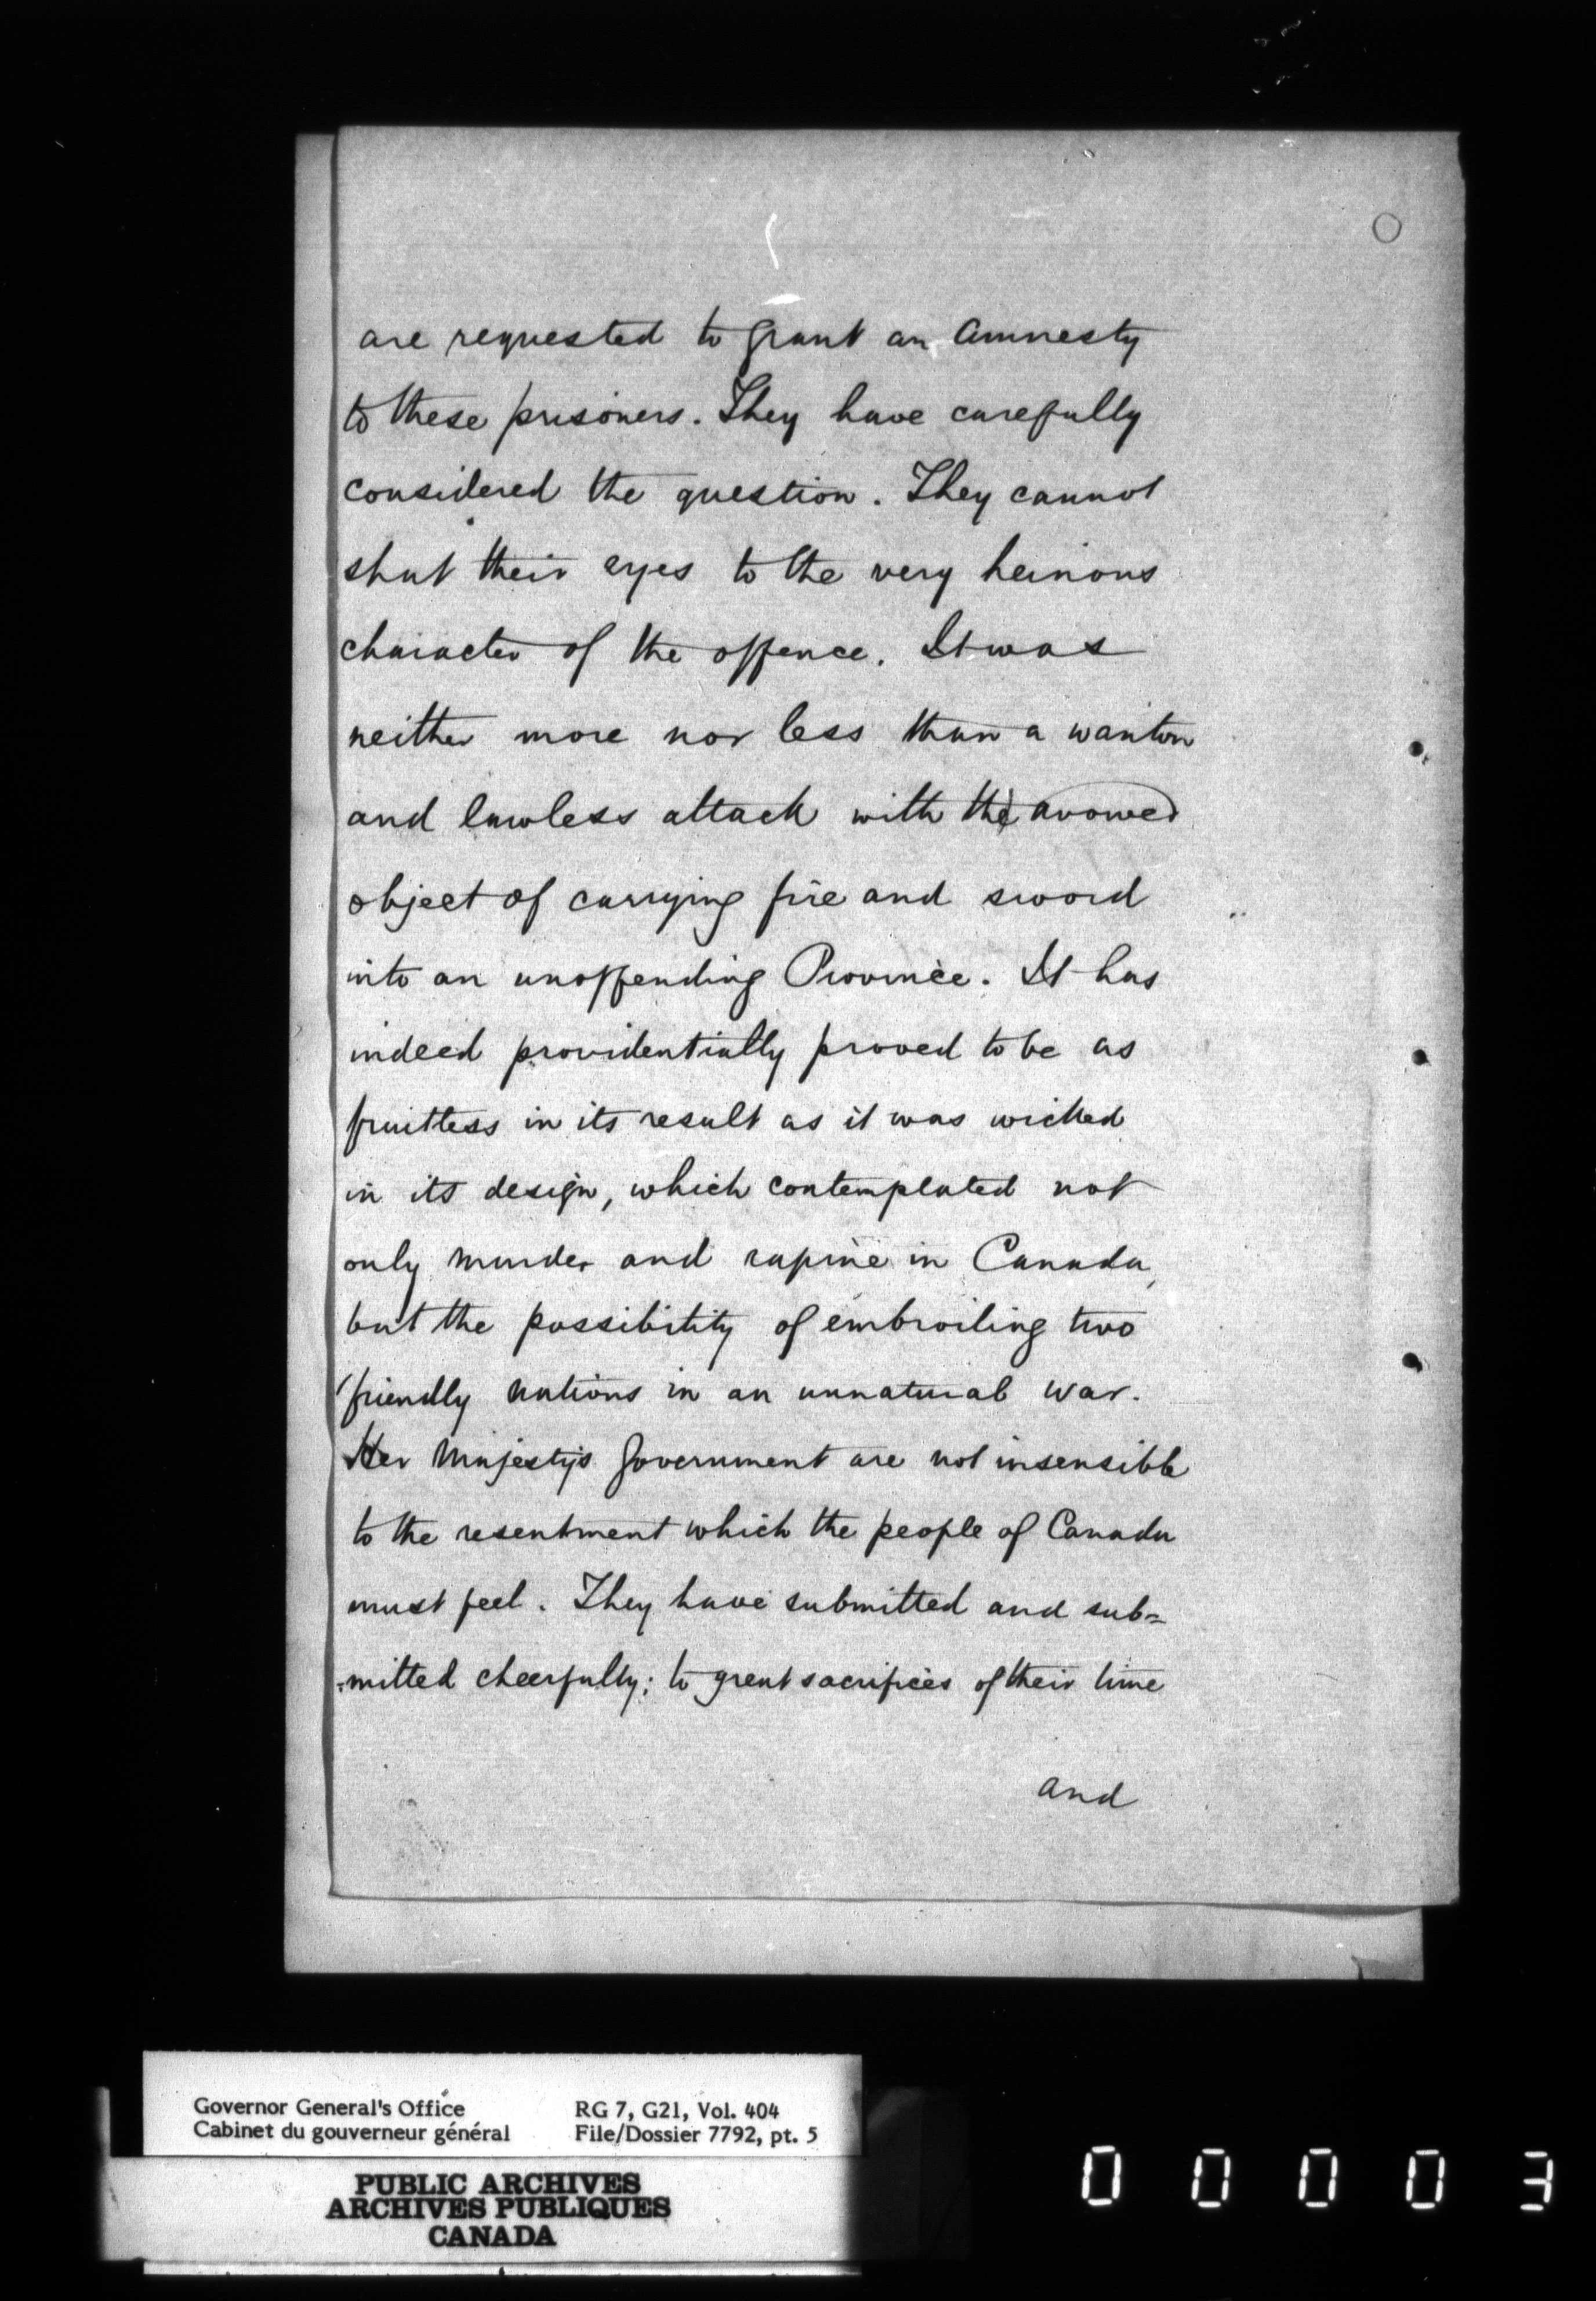 are requested to grant an Amnesty
to these prisoners. They have carefully
considered the question. They cannot
shut their eyes to the very heinous
character of the offence. It was
neither more nor less than a wanton
and lawless attack with the avowed
object of carrying fire and sword
into an unoffending Province. It has
indeed providentially proved to be as
fruitless in its result as it was wicked
in its design, which contemplated not
only murder and rapine in Canada,
but the possibility of embroiling two
friendly nations in an unnatural war.
Her Majesty's Government are not insensible
to the resentment which the people of Canada
must feel. They have submitted and sub=
=mitted cheerfully; to great sacrifices of their time
and
Governor General's Office
Cabinet du gouverneur général
RG 7, G21, Vol. 404
File/Dossier 7792, pt. 5
PUBLIC ARCHIVES
ARCHIVES PUBLIQUES
CANADA
00003